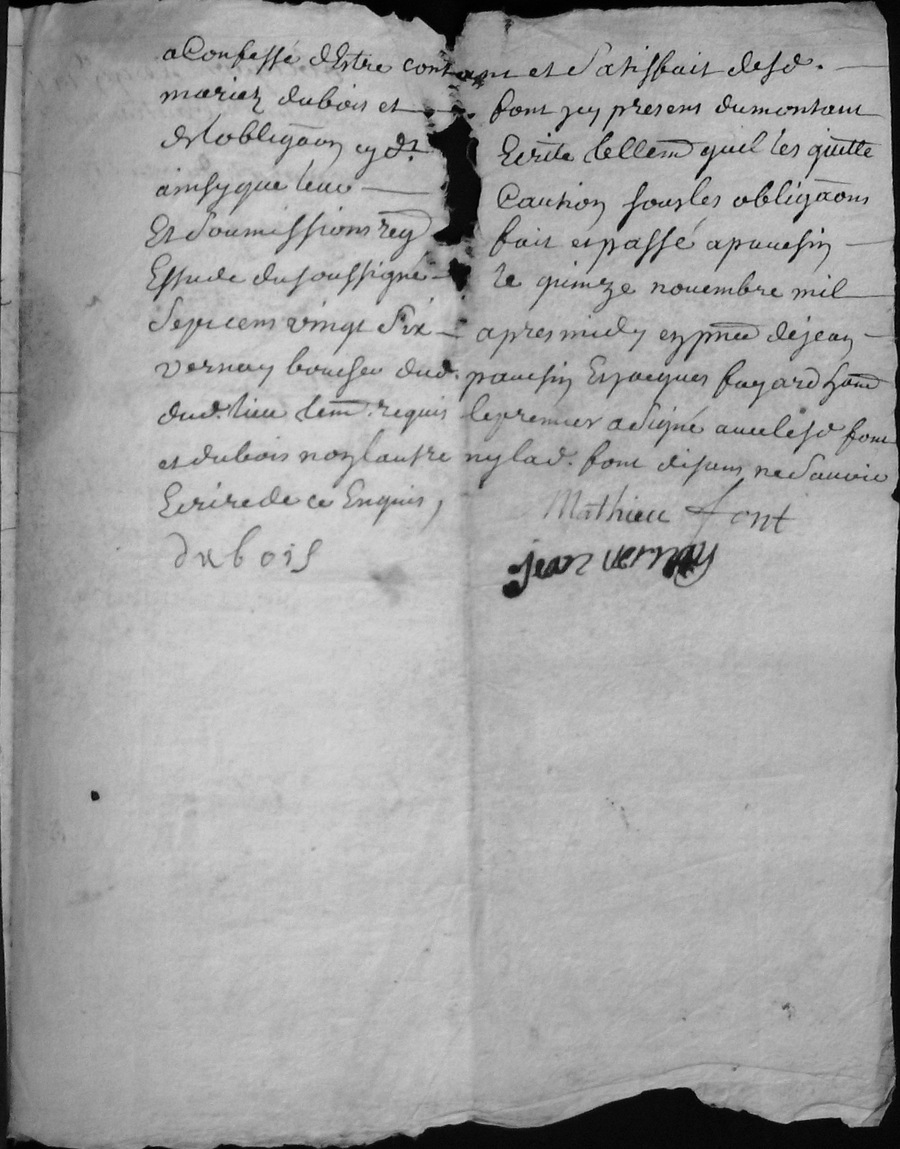 a Confessé d'Estre contant et satisfait desd.
mariez dubois et font icy presens du montant
de l'obligãon cy dt Ecritte tellemt quil les quitte
ainsy que leur Caution sous les obligãons
Et soumissions req fait et passé a pauesin
Estude du soussigné le quinze novembre mil
Sept cens vingt Six apres midy en pnce de jean
vernay boucher dud. pauesin Et jacques fayard hand
dud. lieu tem. requis le premier a signé avec lesd font
et dubois non l'autre ny lad. font disans ne Sauoir
Ecrire de ce Enquis,
Mathieu font
dubois
jean vernay